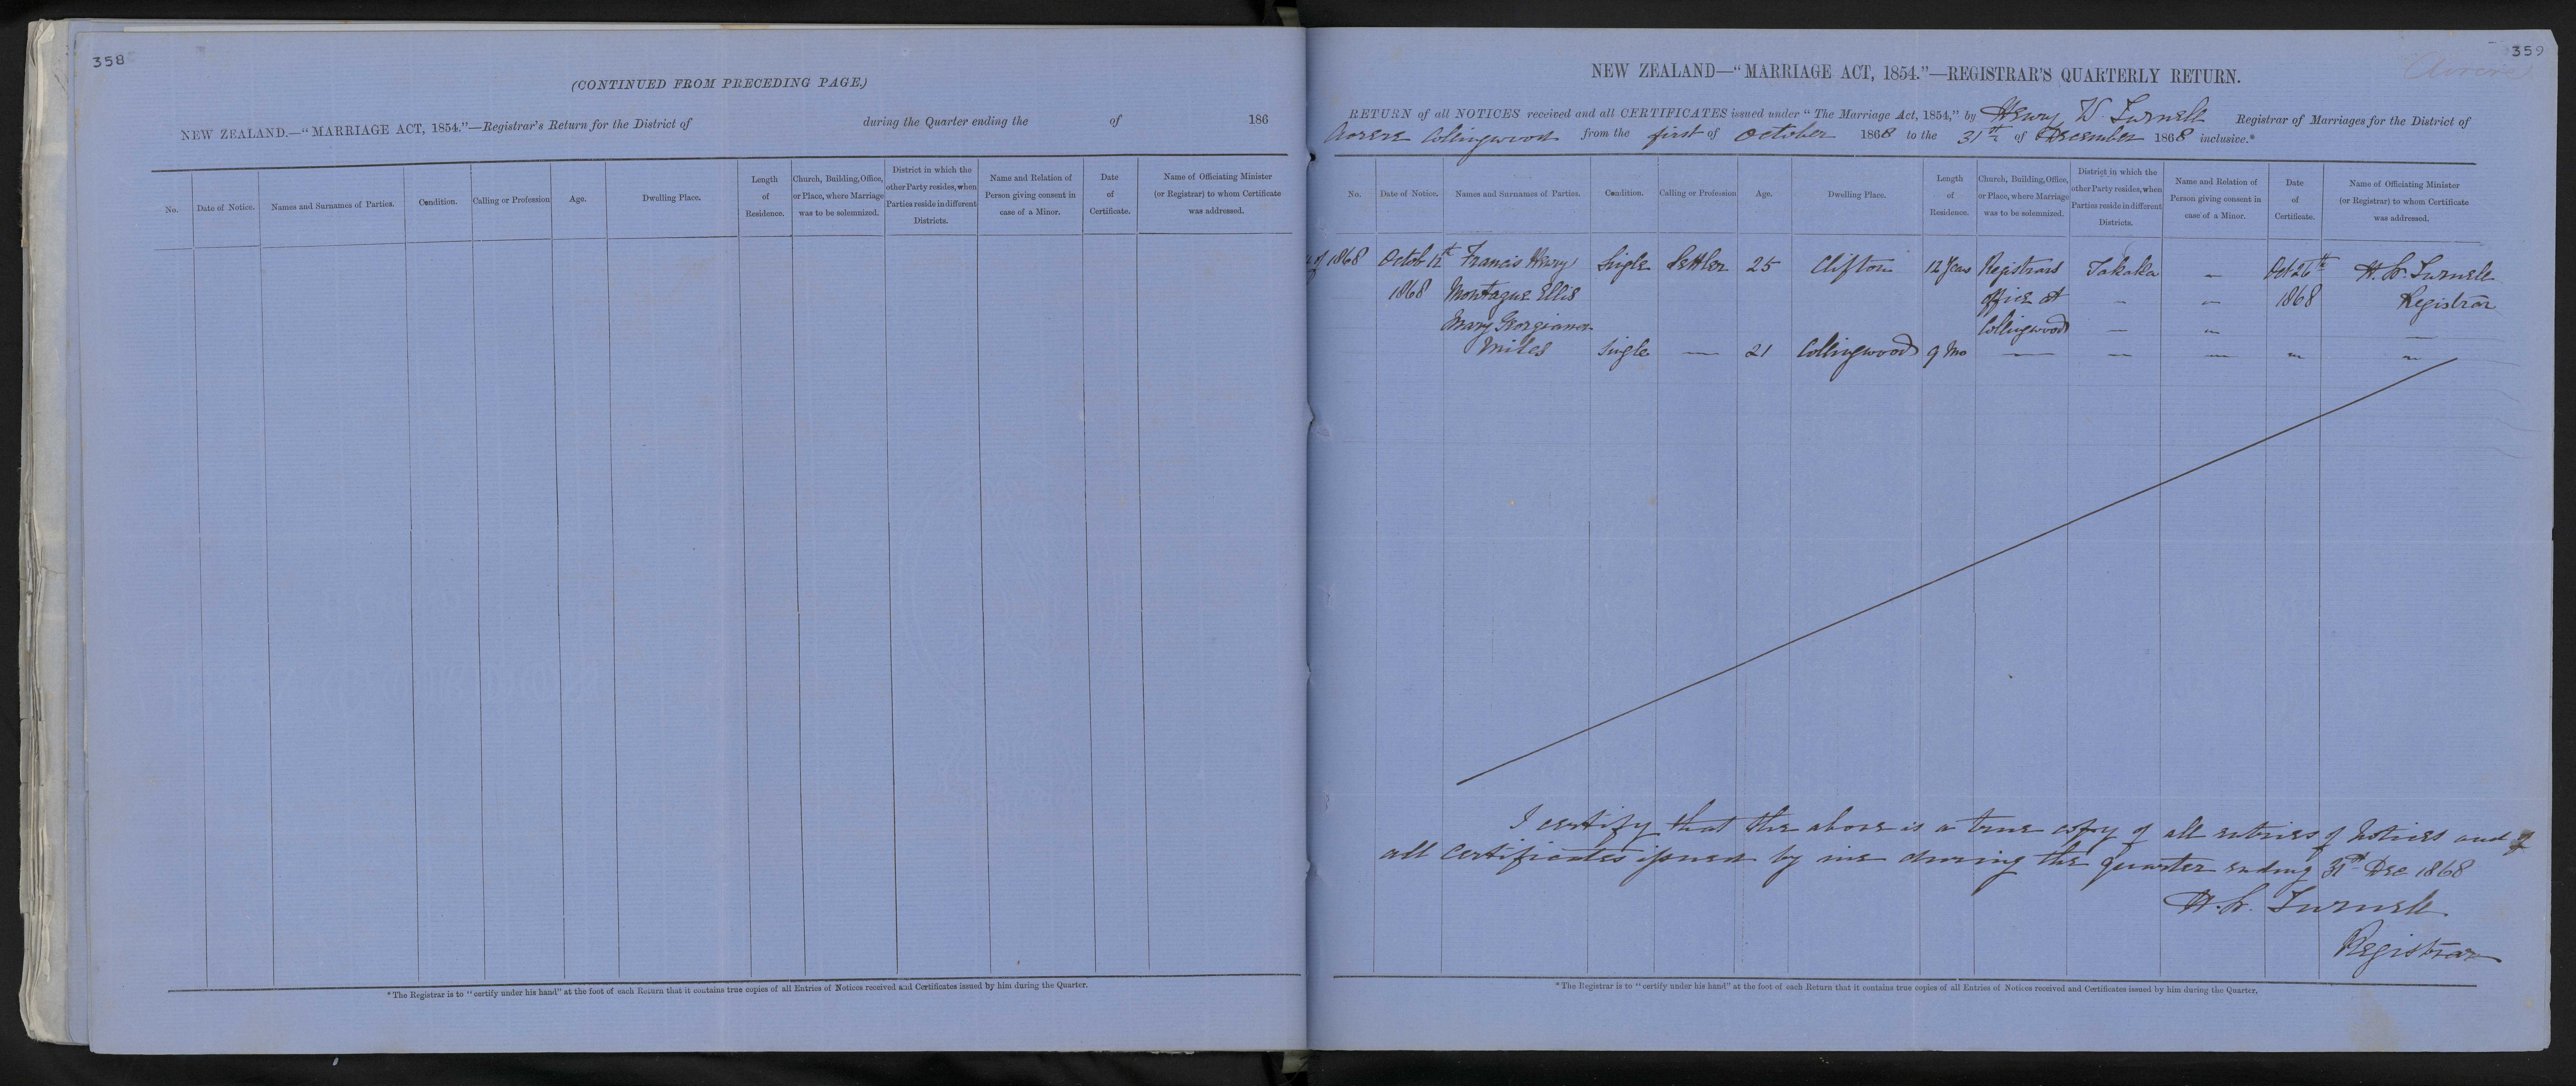 358
(CONTINUED FROM PRECEDING PAGE.)
NEW ZEALAND.—"MARRIAGE ACT, 1854."—Registrar's Return for the District of during the Quarter ending the of 186
No. Date of Notice. Names and Surnames of Parties. Condition. Calling or Profession Age. Dwelling Place. Length of Residence. Church, Building, Office, or Place, where Marriage was to be solemnized. District in which the other Party resides, when Parties reside in different Districts. Name and Relation of Person giving consent in case of a Minor. Date of Certificate. Name of Officiating Minister (or Registrar) to whom Certificate was addressed.
*The Registrar is to "certify under his hand" at the foot of each Return that it contains true copies of all Entries of Notices received and Certificates issued by him during the Quarter.
359
NEW ZEALAND—"MARRIAGE ACT, 1854."—REGISTRAR'S QUARTERLY RETURN.
RETURN of all NOTICES received and all CERTIFICATES issued under "The Marriage Act, 1854," by Henry W. Turnell Registrar of Marriages for the District of
Aorere Collingwood from the first of October 1868 to the 31st of December 1868 inclusive.*
No. Date of Notice. Names and Surnames of Parties. Condition. Calling or Profession Age. Dwelling Place. Length of Residence. Church, Building, Office, or Place, where Marriage was to be solemnized. District in which the other Party resides, when Parties reside in different Districts. Name and Relation of Person giving consent in case of a Minor. Date of Certificate. Name of Officiating Minister (or Registrar) to whom Certificate was addressed.
of 1868 Octob 12th Francis Henry Single Settler 25 Clifton 12 Years Registrars Takaka — Oct 26th H. W. Turnell
1868 Montague Ellis office at — — 1868 Registrar
Mary Georgianna Collingwood — — —
Miles Single — 21 Collingwood 9 Mo — — — — —
I certify that the above is a true copy of all entries of Notices and of
all certificates issued by me during the quarter ending 31st Dec 1868
H. W. Turnell
Registrar
*The Registrar is to "certify under his hand" at the foot of each Return that it contains true copies of all Entries of Notices received and Certificates issued by him during the Quarter.